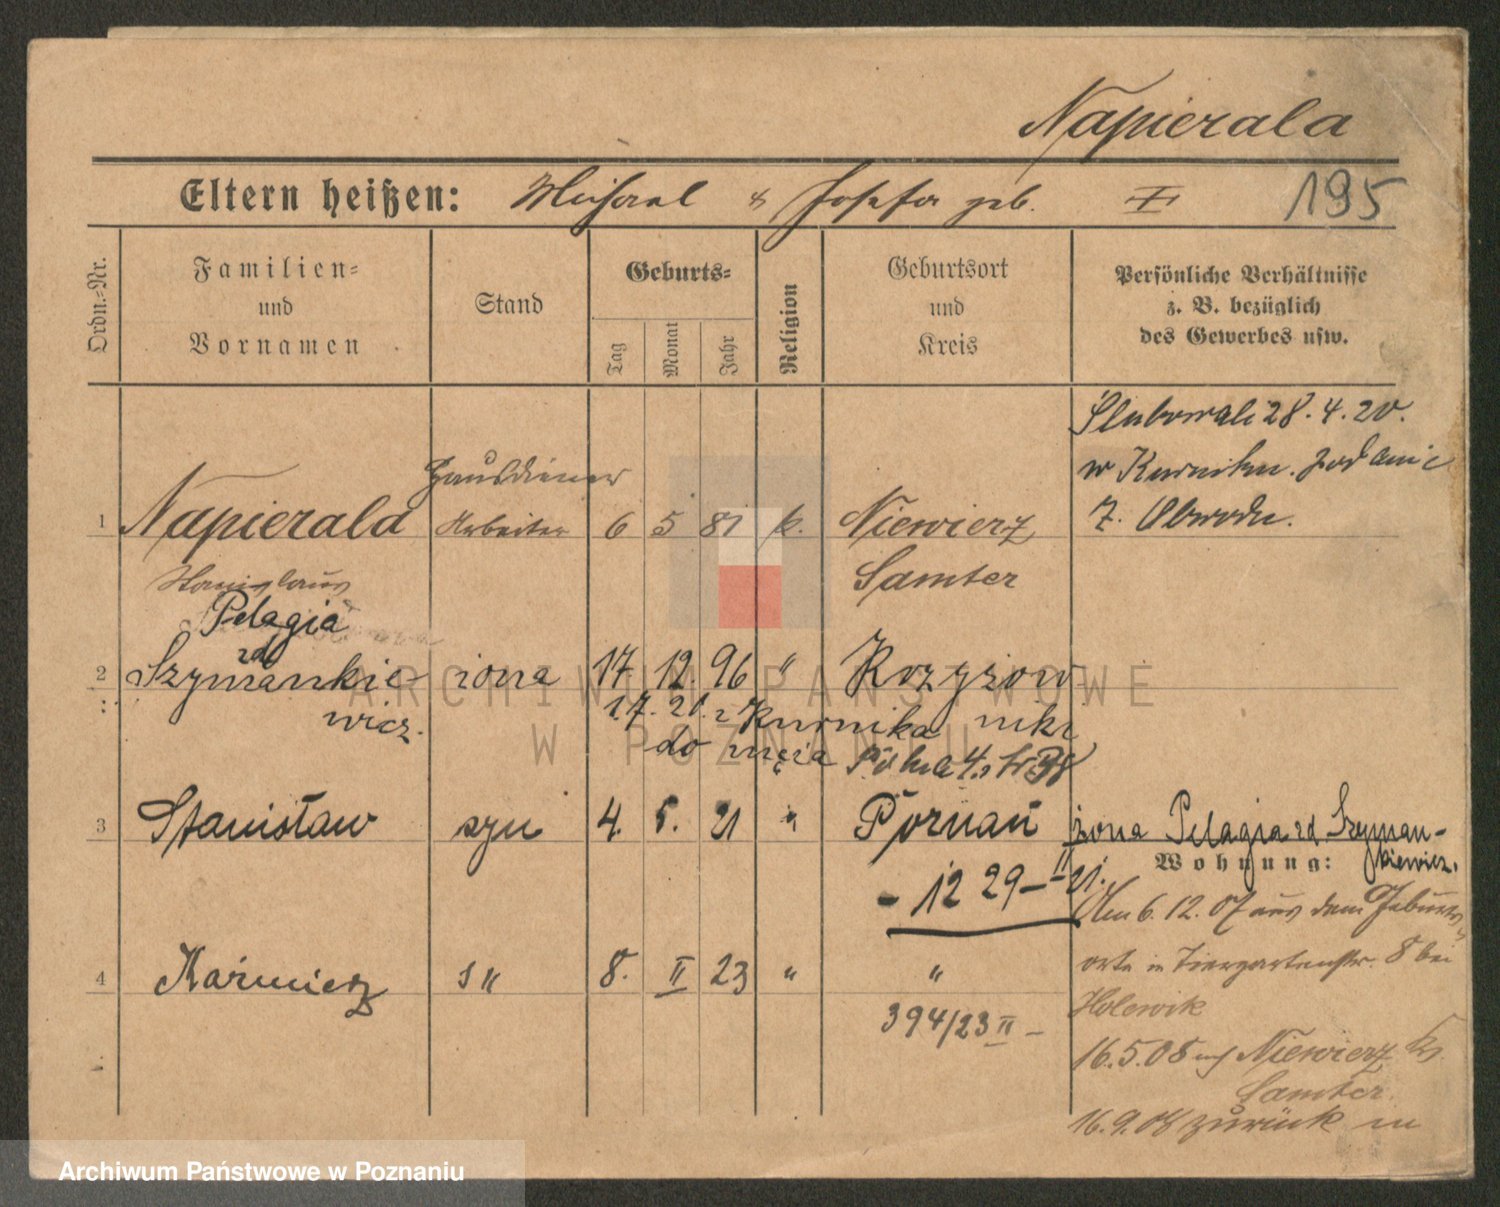 Napierala
Eltern heißen: Michael & Josefa geb. I
195
Ordn.-Nr.
Familien-
und
Vornamen
Stand
Geburts-
Tag
Monat
Jahr
Religion
Geburtsort
und
Kreis
Persönliche Verhältnisse
z. B. bezüglich
des Gewerbes usw.
Ślubowali 28.4.20.
w Kurniku. podanie
z. Obwodu.
Hausdiener
1 Napierala Arbeiter 6 5 81 k. Niewierz
Stanislaus Samter
Pelagia
zd
2 Szymankie- żona 17 12. 96 " Krzyżow
wicz. 17. 21. z Kurnika niki
do męża
3 Stanisław syn 4. 5. 21 " Poznań żona Pelagia zd Szyman-
kiewicz.
Wohnung:
- 12 29 - II 21.
Am 6.12.07 aus dem Geburts
orte in Tiergartenstr. 8 bei
4 Kaźmierz s " 8. II 23 " "
Holewik
394/23 II -
16.5.08 nach Niewierz Kr.
Samter.
16.9.08 zurück in
ARCHIWUM PAŃSTWOWE
W POZNANIU
Archiwum Państwowe w Poznaniu